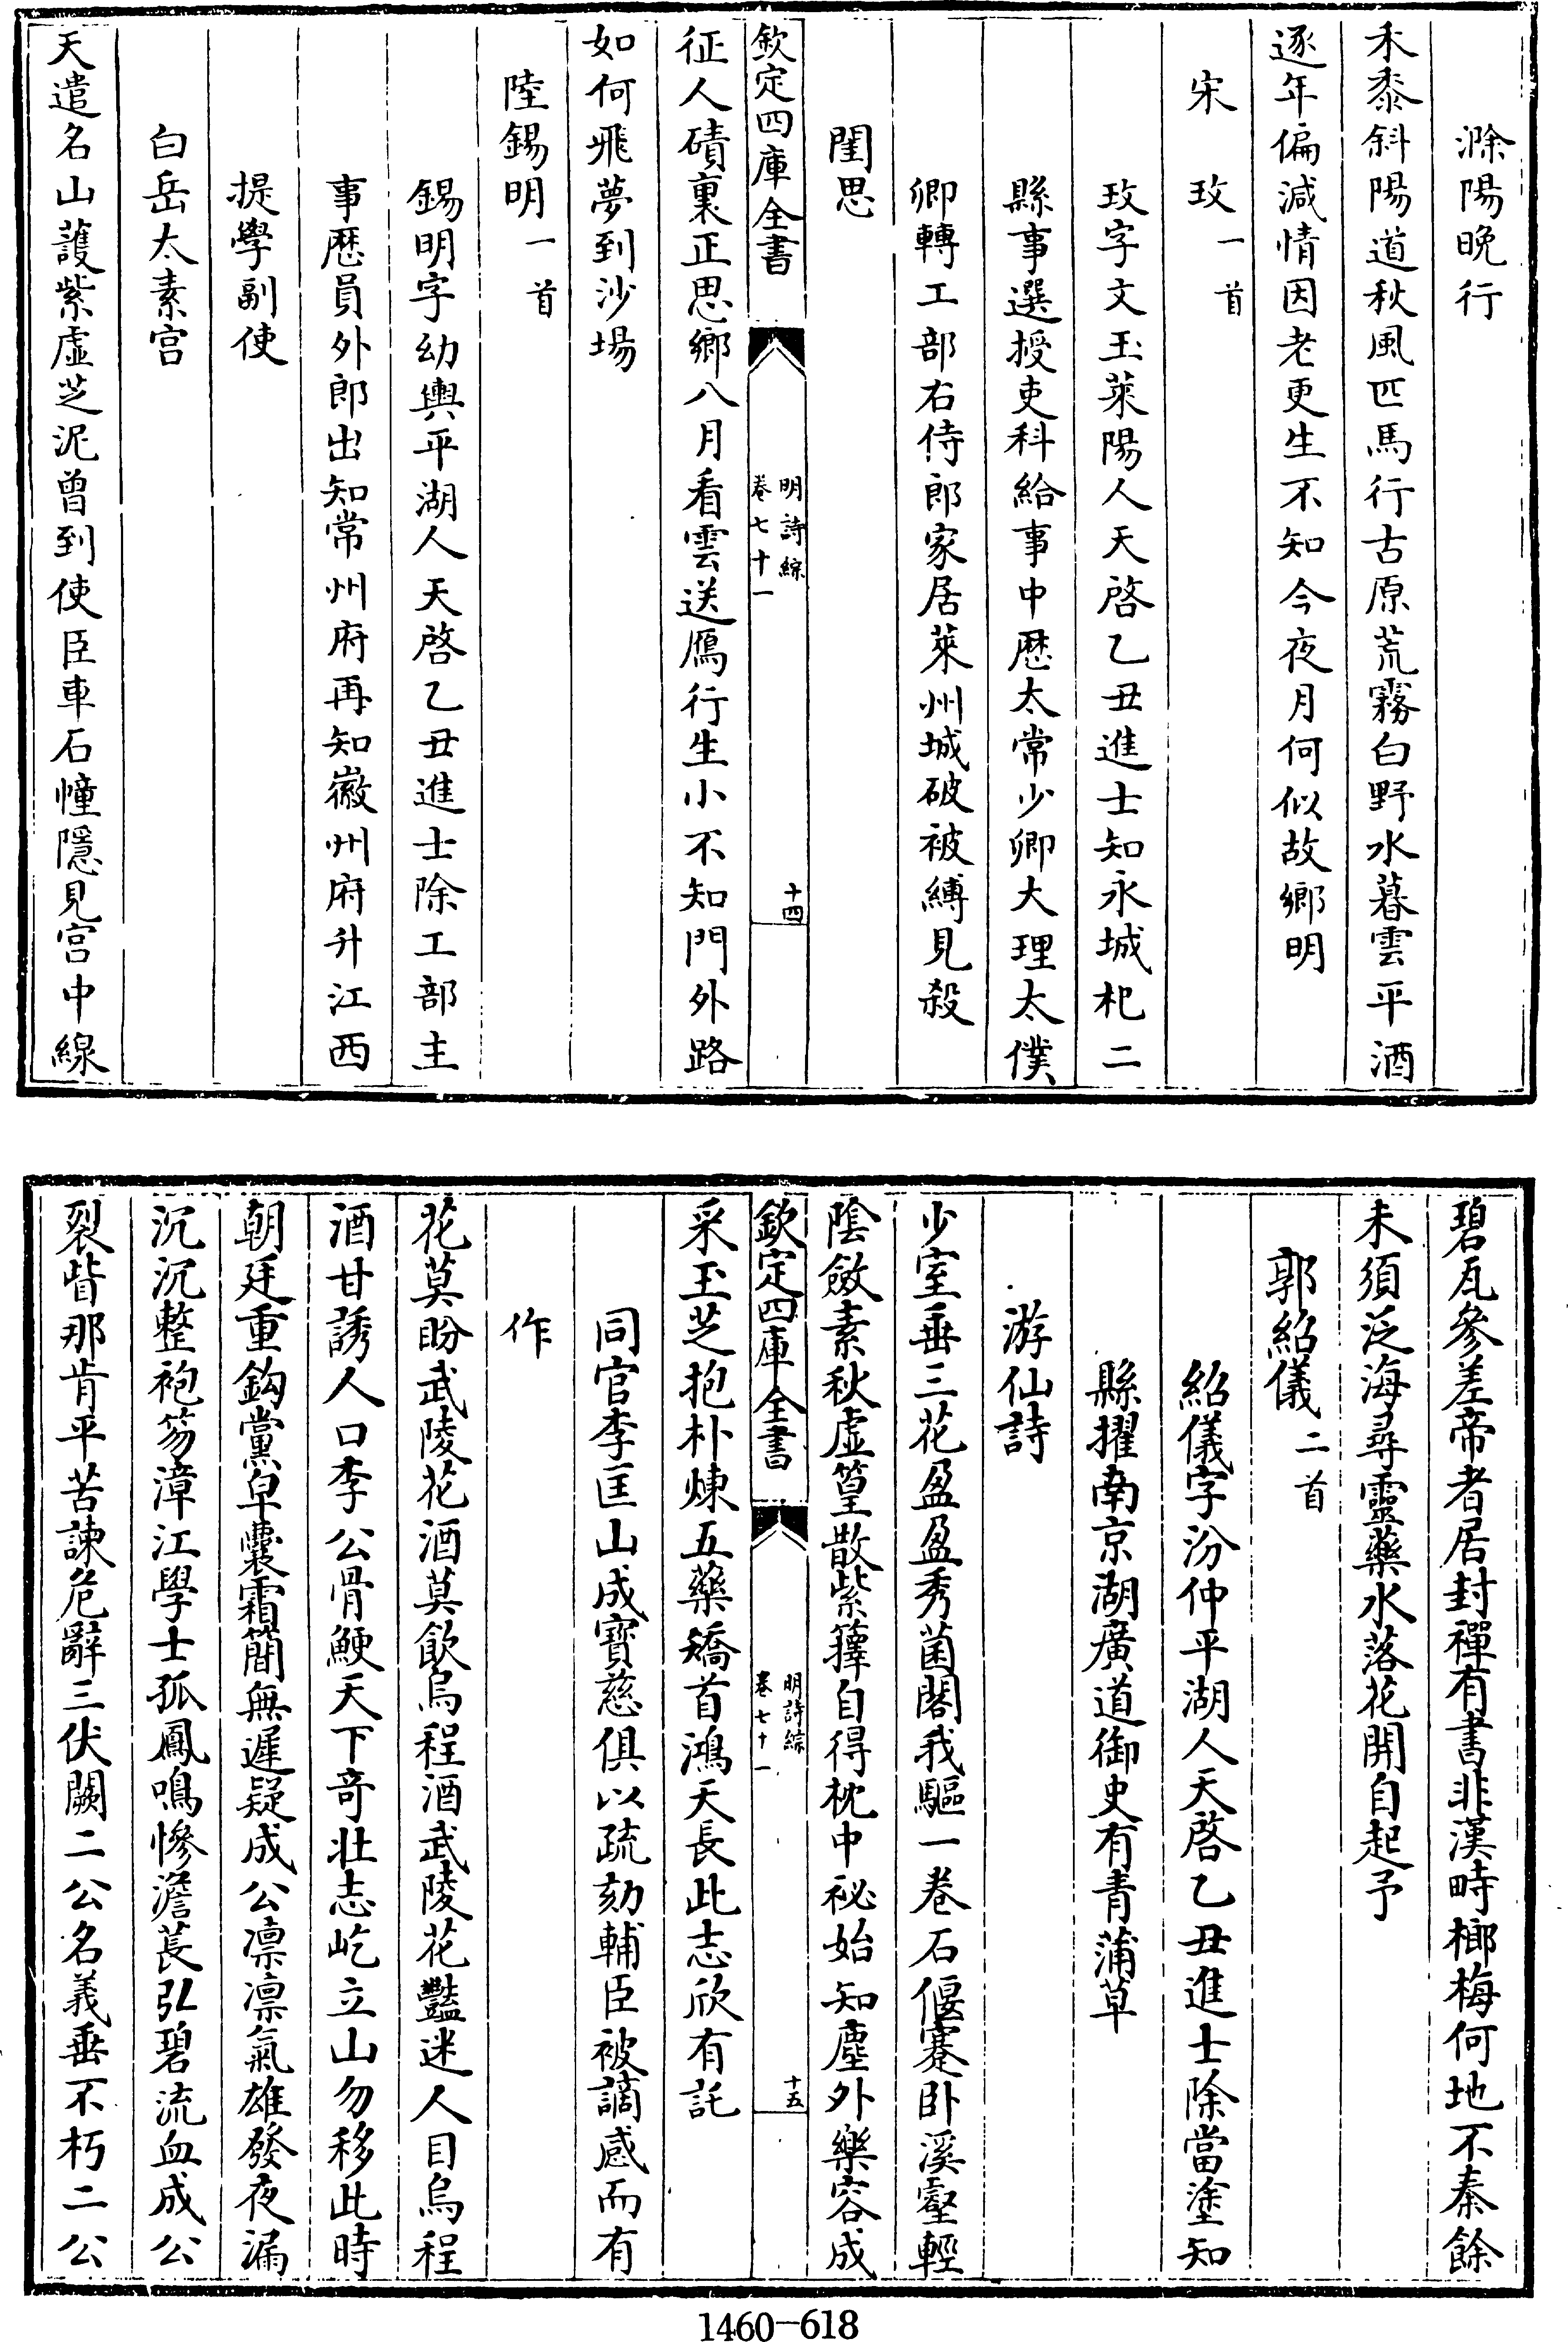 滁陽晚行
禾黍斜陽道秋風匹馬行古原荒霧白野水暮雲平酒
逐年偏減情因老更生不知今夜月何似故鄉明
宋玫一首
玫字文玉萊陽人天啓乙丑進士知永城杞二
縣事選授吏科給事中歷太常少卿大理太僕
卿轉工部右侍郎家居萊州城破被縛見殺
閨思
欽定四庫全書 明詩綜卷七十一 十四
征人磧裏正思鄉八月看雲送鴈行生小不知門外路
如何飛夢到沙場
陸錫明一首
錫明字幼輿平湖人天啓乙丑進士除工部主
事歷員外郎出知常州府再知徽州府升江西
提學副使
白岳太素宮
天遣名山護紫虛芝泥曾到使臣車石幢隱見宮中線
碧瓦參差帝者居封禪有書非漢時榔梅何地不秦餘
未須泛海尋靈藥水落花開自起予
郭紹儀二首
紹儀字汾仲平湖人天啓乙丑進士除當塗知
縣擢南京湖廣道御史有青蒲草
游仙詩
少室垂三花盈盈秀菌閣我驅一卷石偃蹇卧溪壑輕
陰斂素秋虛篁散紫籜自得枕中祕始知塵外樂容成
欽定四庫全書 明詩綜卷七十一 十五
采玉芝抱朴煉五藥矯首鴻天長此志欣有託
同官李匡山成寶慈俱以疏劾輔臣被謫感而有
作
花莫盼武陵花酒莫飲烏程酒武陵花豔迷人目烏程
酒甘誘人口李公骨鯁天下竒壯志屹立山勿移此時
朝廷重鈎黨皁囊霜簡無遲疑成公凛凛氣雄發夜漏
沉沉整袍笏漳江學士孤鳳鳴慘澹萇弘碧流血成公
裂眥那肯平苦諫危辭三伏闕二公名義垂不朽二公
1460—618